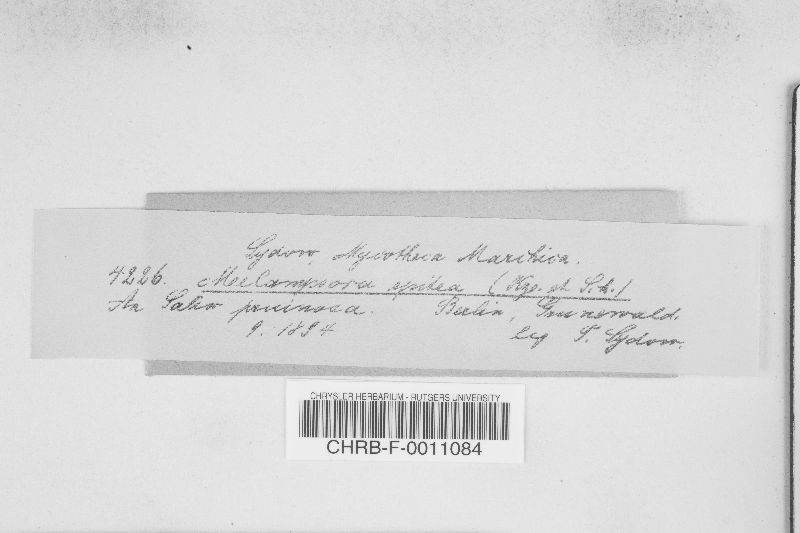 Sydow, Mycotheca Marchica.
4226. Melampsora epitea (Kze. et S.)
An Salix pruinosa. Berlin, Grunewald.
9. 1894 leg P. Sydow.
CHRYSLER HERBARIUM - RUTGERS UNIVERSITY
CHRB-F-0011084